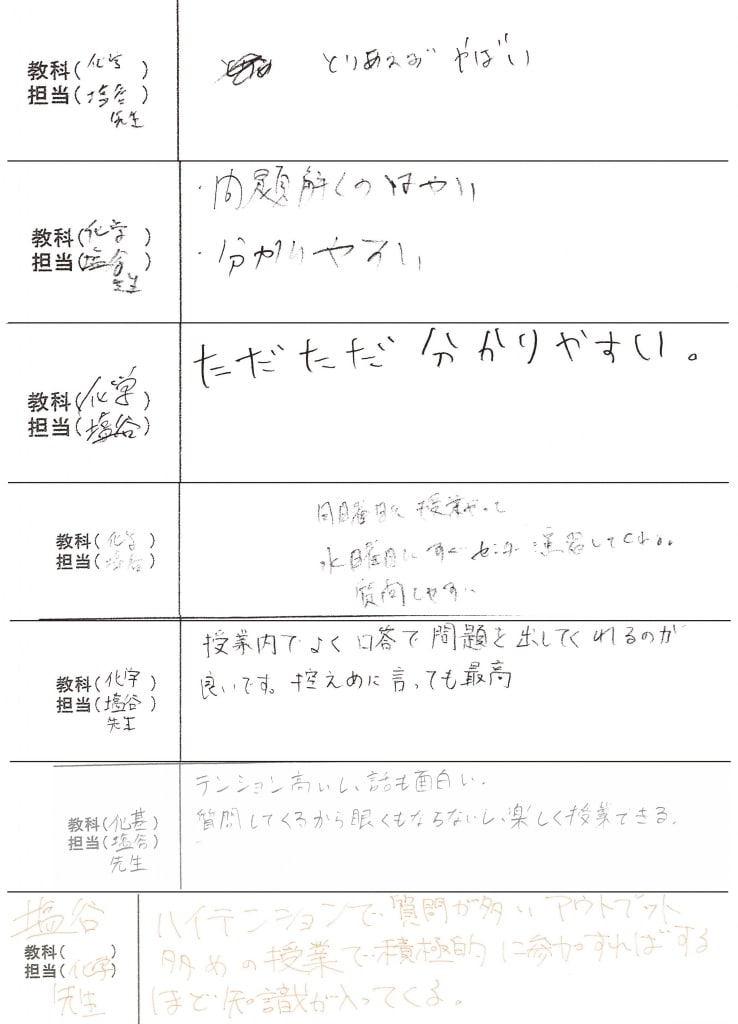 教科(化学)
担当(塩谷)
先生
とりあえず やばい
教科(化学)
担当(塩谷)
先生
・問題解くのはやい
・分かりやすい
教科(化学)
担当(塩谷)
ただただ 分かりやすい。
教科(化学)
担当(塩谷)
日曜日に 授業やって
水曜日に すぐ センター 演習してくれる。
質問しやすい
教科(化学)
担当(塩谷)
先生
授業内でよく口答で問題を出してくれるのが
良いです。控えめに言っても最高
教科(化基)
担当(塩谷)
先生
テンション高いし、話も面白い。
質問してくるから眠くもならないし、楽しく授業できる。
塩谷
教科( )
担当(化学)
先生
ハイテンションで質問が多い アウトプット
多めの授業で積極的に参加すればする
ほど知識が入ってくる。